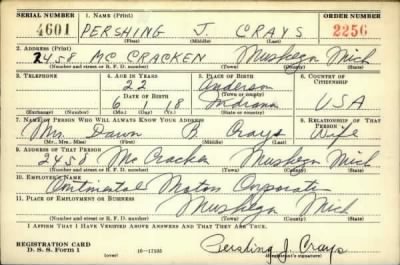 SERIAL NUMBER 1. NAME (Print) ORDER NUMBER
4601 PERSHING J. CRAYS 2256
(First) (Middle) (Last)
2. ADDRESS (Print)
2458 MC CRACKEN Muskegn Mich
(Number and street or R. F. D. number) (Town) (County) (State)
3. TELEPHONE 4. AGE IN YEARS 5. PLACE OF BIRTH 6. COUNTRY OF CITIZENSHIP
22 Anderson
DATE OF BIRTH (Town or county)
6 1 18 Indiana USA
(Exchange) (Number) (Mo.) (Day) (Yr.) (State or country)
7. NAME OF PERSON WHO WILL ALWAYS KNOW YOUR ADDRESS 8. RELATIONSHIP OF THAT PERSON
Mrs. Dawn B Crays Wife
(Mr., Mrs., Miss) (First) (Middle) (Last)
9. ADDRESS OF THAT PERSON
2458 Mc Cracken Muskegn Mich
(Number and street or R. F. D. number) (Town) (County) (State)
10. EMPLOYER'S NAME
Continental Motors Corporation
11. PLACE OF EMPLOYMENT OR BUSINESS
Muskegn Mich
(Number and street or R. F. D. number) (Town) (County) (State)
I AFFIRM THAT I HAVE VERIFIED ABOVE ANSWERS AND THAT THEY ARE TRUE.
REGISTRATION CARD
D. S. S. Form 1 (over) 16—17105 Pershing J. Crays
(Registrant's signature)